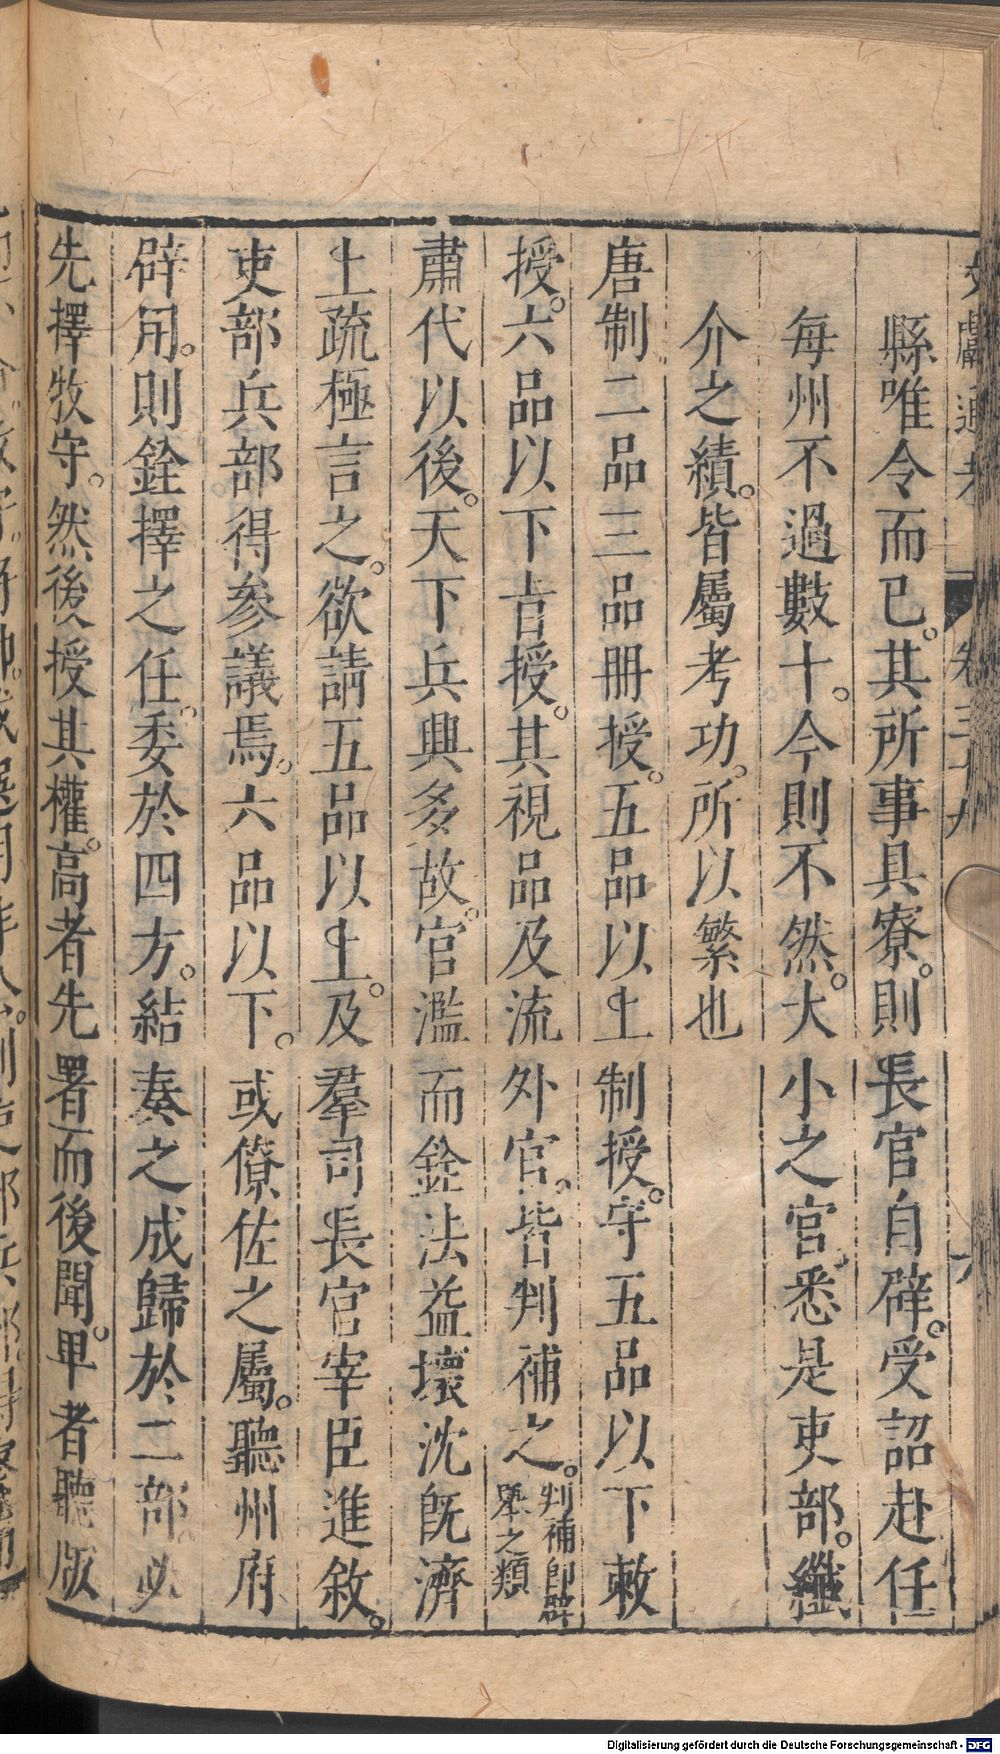 縣唯令而已。其所事具寮。則長官自辟。受詔赴任
每州不過數十。今則不然。大小之官。悉是吏部。纖
介之績。皆屬考功。所以繁也
唐制二品三品冊授。五品以上制授。守五品以下敕
授。六品以下㫖授。其視品及流外官。皆判補之。判補卽辟舉之類
肅代以後。天下兵興多故。官濫而銓法益壞沈旣濟
上疏極言之。欲請五品以上。及羣司長官宰臣進敘。
吏部兵部得參議焉。六品以下。或僚佐之屬。聽州府
辟用。則銓擇之任。委於四方。結奏之成歸於二部。必
先擇牧守。然後授其權。高者先署而後聞。卑者聽版
Digitalisierung gefördert durch die Deutsche Forschungsgemeinschaft - DFG